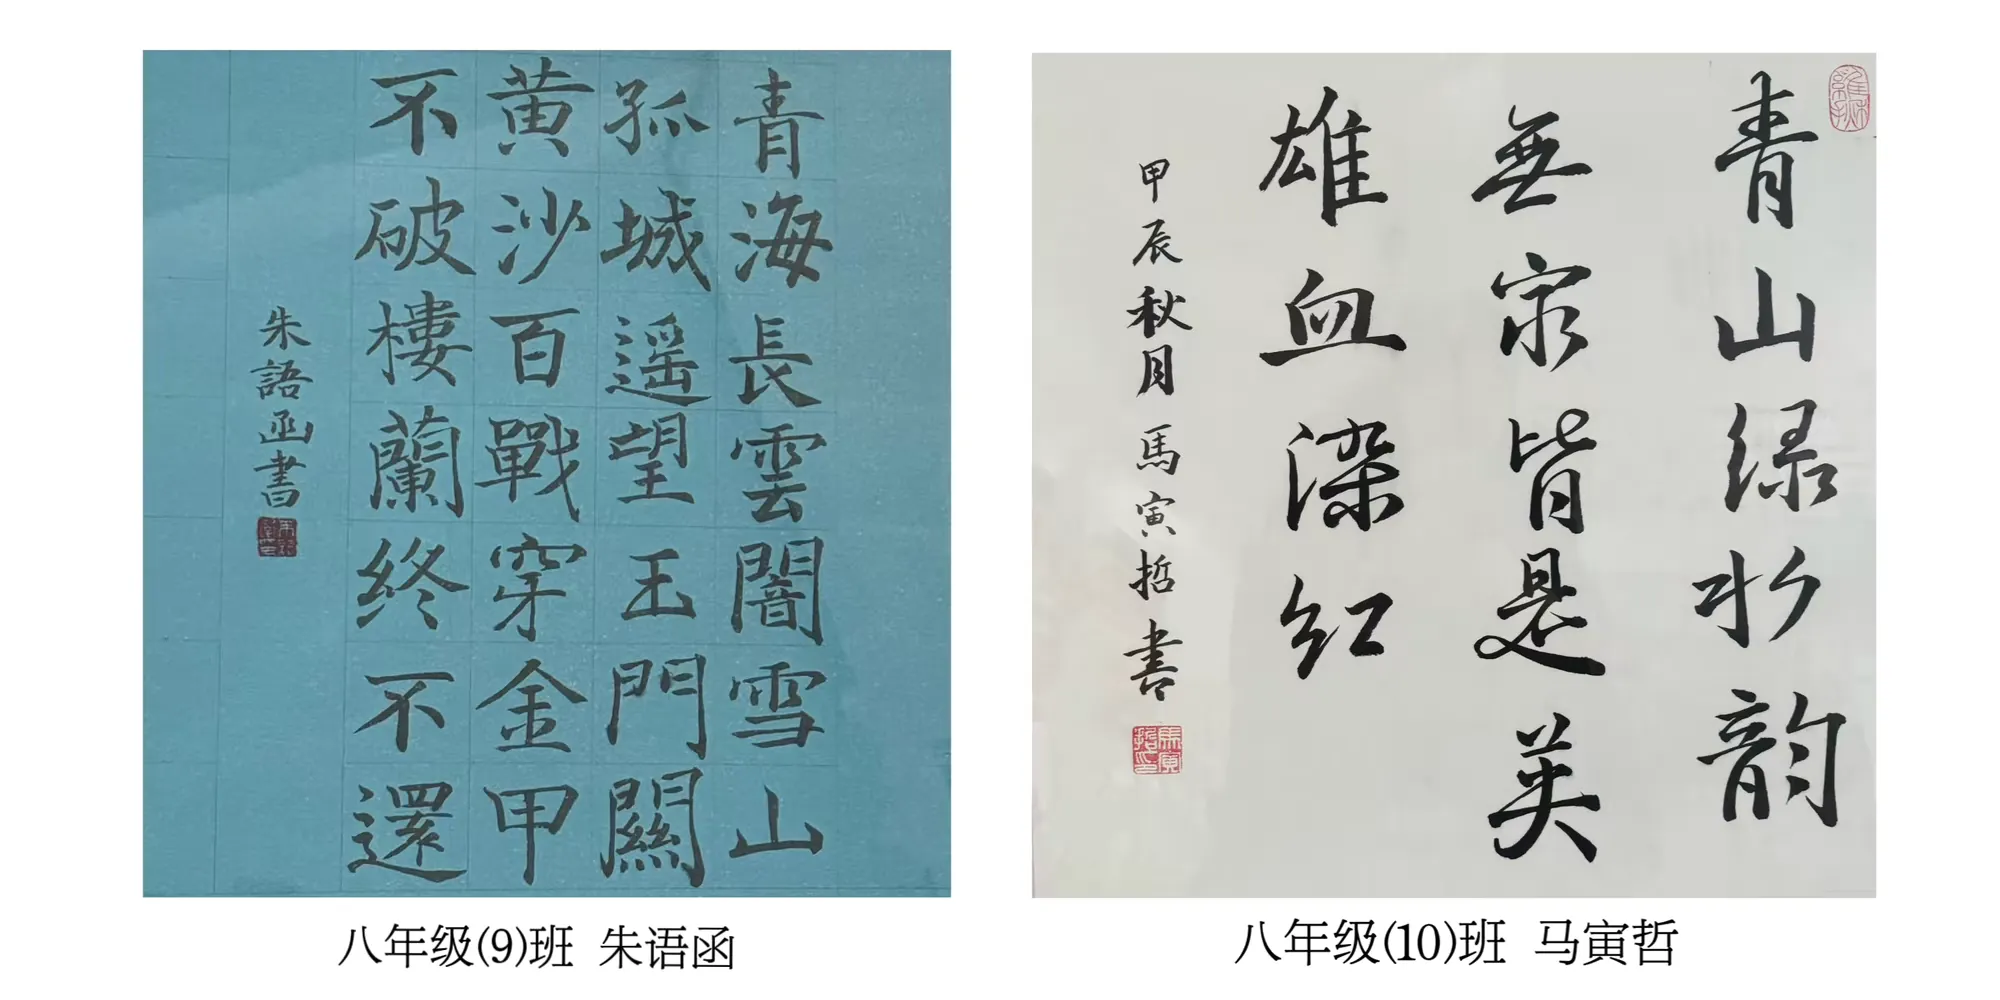 青海長雲闇雪山
孤城遥望玉門關
黄沙百戰穿金甲
不破樓蘭終不還
朱語函書
八年级(9)班 朱语函
青山绿水韵
無穷皆是英
雄血染红
甲辰秋月馬寅哲書
八年级(10)班 马寅哲